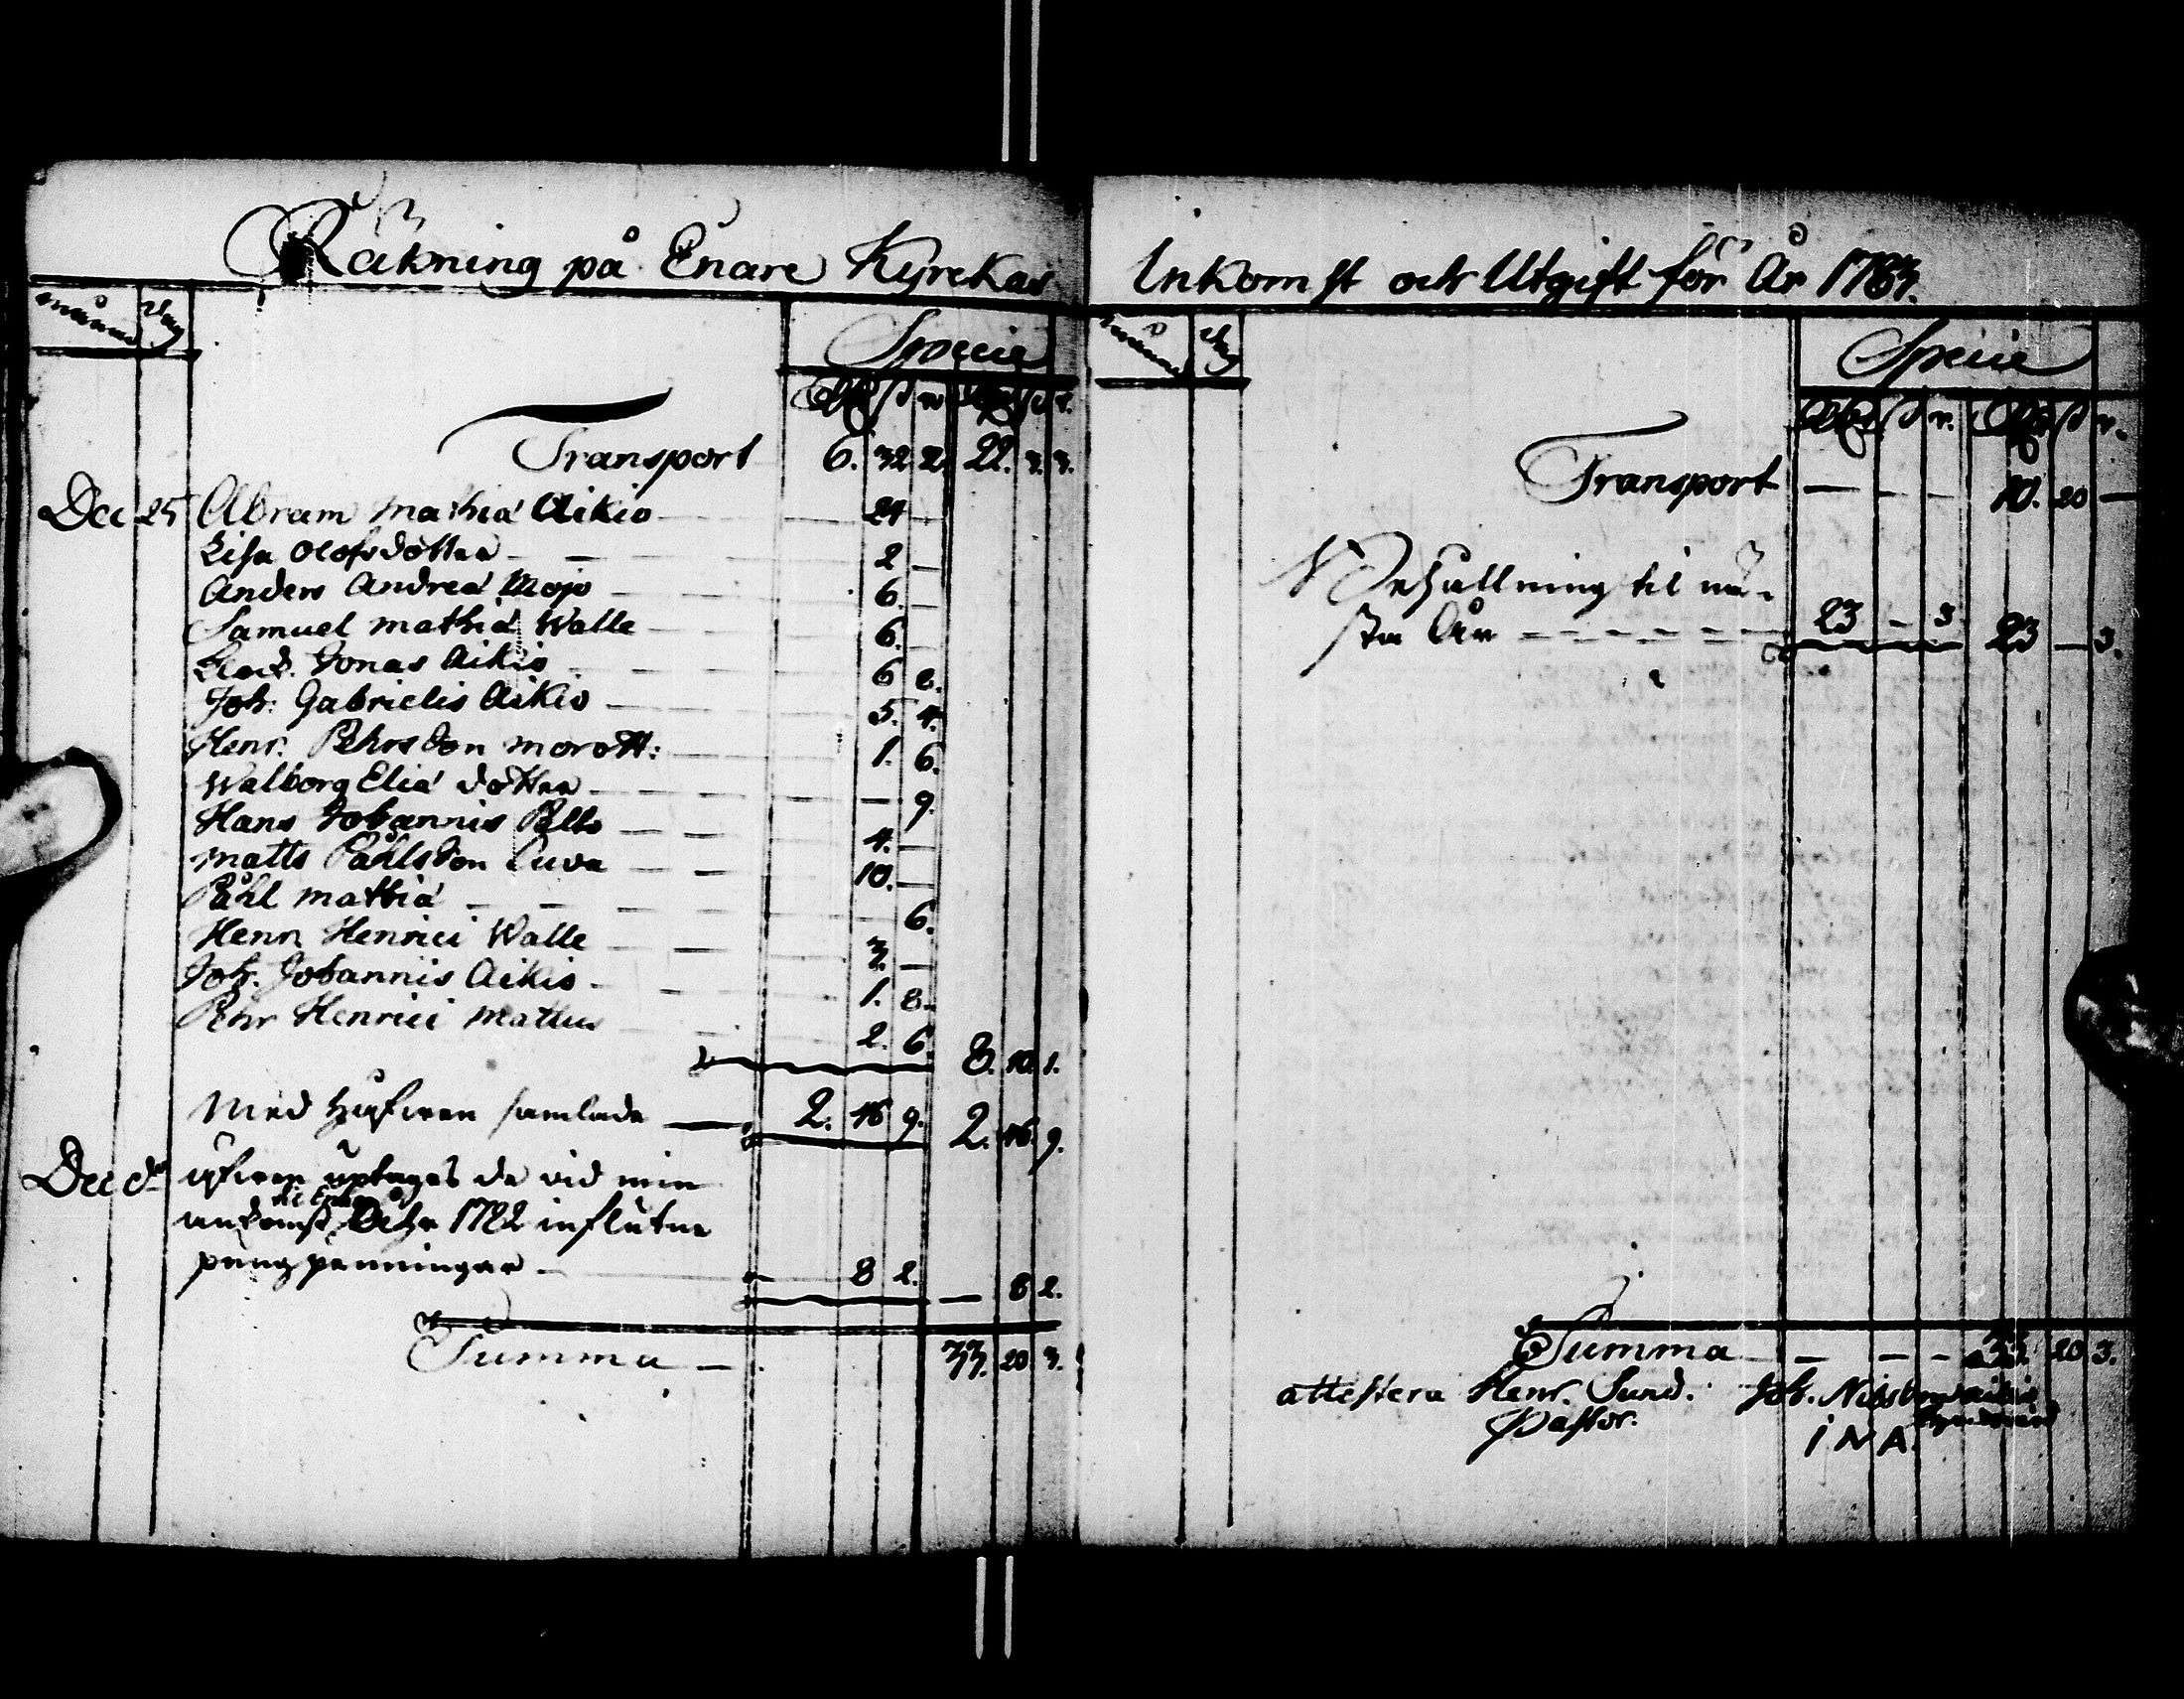 Räkning på Enare Kyrckas
månad Dag
Specie
Rdr ß r. Rdr ß r.
Transport 6. 32. 2. 22. 3. 3.
Dec 25 Abram Mathiæ Aikio 24 —
Lisa Olofsdotter 2 —
Anders Andreæ Mojo 6. —
Samuel Mathiæ Walle 6. —
Klock. Jonas Aikio 6 8.
Joh: Gabrielis Aikio 5. 4.
Henr. Pehrsson Morott: 1. 6.
Walborg Eliæ dotter — 9.
Hans Johannis Palto 4. —
Matts Påhlsson Cuva 10. —
Påhl Mathiæ 6.
Henr. Henrici Walle 3. —
Joh. Johannis Aikio 1. 8.
Pehr Henrici Mattus 2. 6. 8. 10. 1.
Med Håfwen samlade 2. 46 9. 2. 46. 9.
Dec do äfwen uptages de vid min
ankomst 1782 influtne
pungpenningar 8 2. — 8 2.
Summa 33. 20 3.
Inkomst och Utgift för År 1783.
månad Dag
Specie
Rdr ß r. Rdr ß r.
Transport — — — 10. 20 —
Behållning til nä-
sta År 23 — 3 23 — 3.
Summa — — — 33. 20 3.
attestera Henr. Sund. Joh. Nilsson Aikio
Pastor.
I N A.